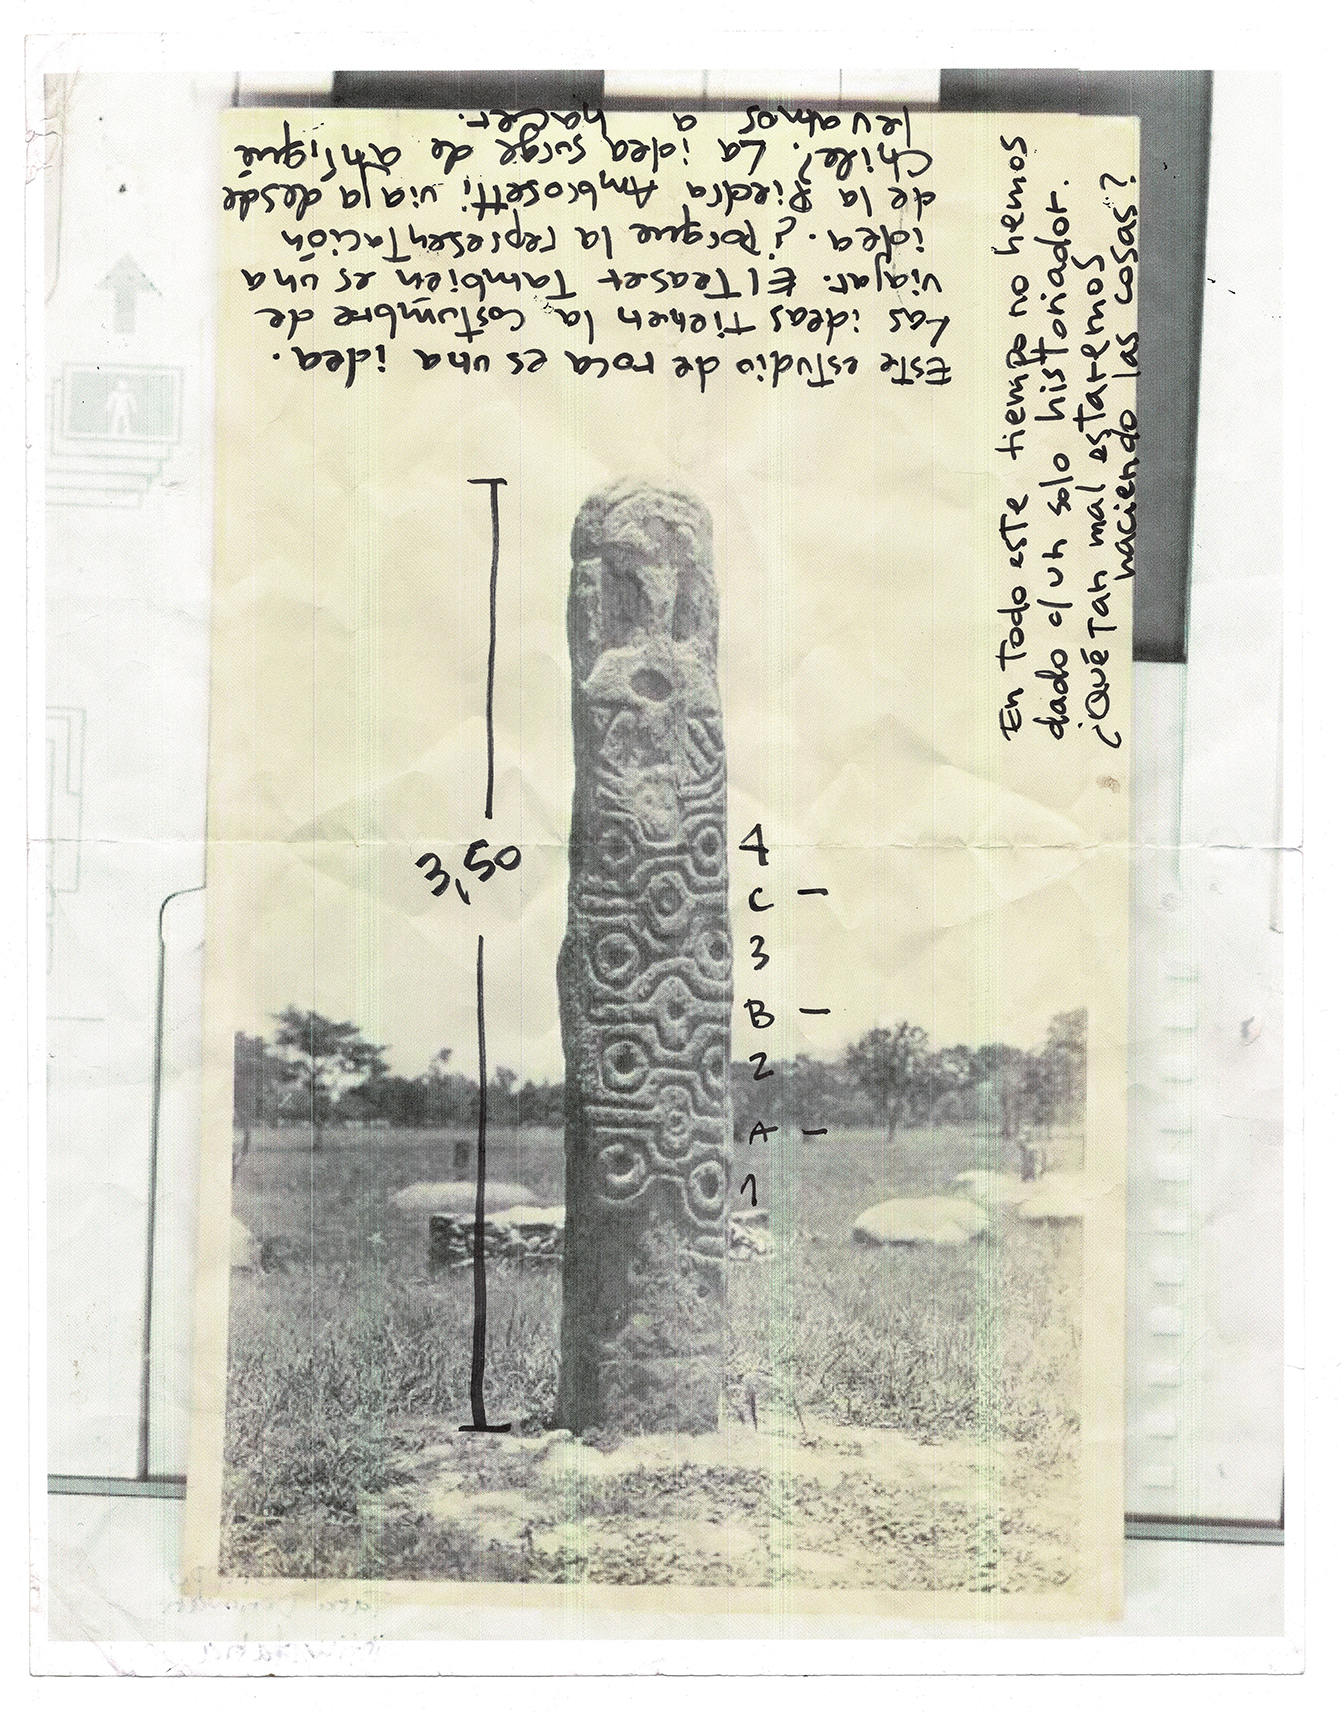 Este estudio de roca es una idea.
Las ideas tienen la costumbre de
viajar. El Teaser También es una
idea. ¿Porque la representación
de la Piedra Ambrosetti viaja desde
Chile? La idea surge de ahí, que
le vamos a hacer.
En Todo este tiempo no hemos
dado c/ un solo historiador.
¿Qué Tan mal estaremos
haciendo las cosas?
3,50
4
C –
3
B –
2
A –
1